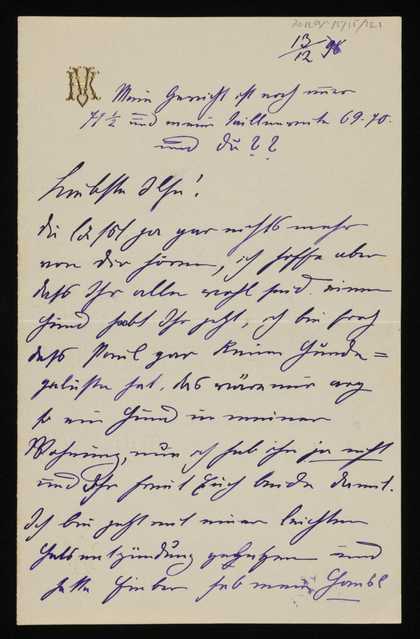 13/12 96
Mein Gewicht ist noch immer
71 ½ und meine Taillenweite 69-70.
und Du??
Liebste Ilse!
Du läßt ja gar nichts mehr
von Dir hören, ich hoffe aber
daß Ihr alle wohl seid. einen
Hund habt Ihr jetzt, ich bin froh
daß Paul gar keine Hunde=
gelüste hat, das wäre mir arg
so ein Hund in meiner
Wohnung, nun ich hab ihn ja nicht
und Ihr freut Euch beide damit.
Ich bin jetzt mit einer leichten
Halsentzündung und
hatte Fieber hab mein